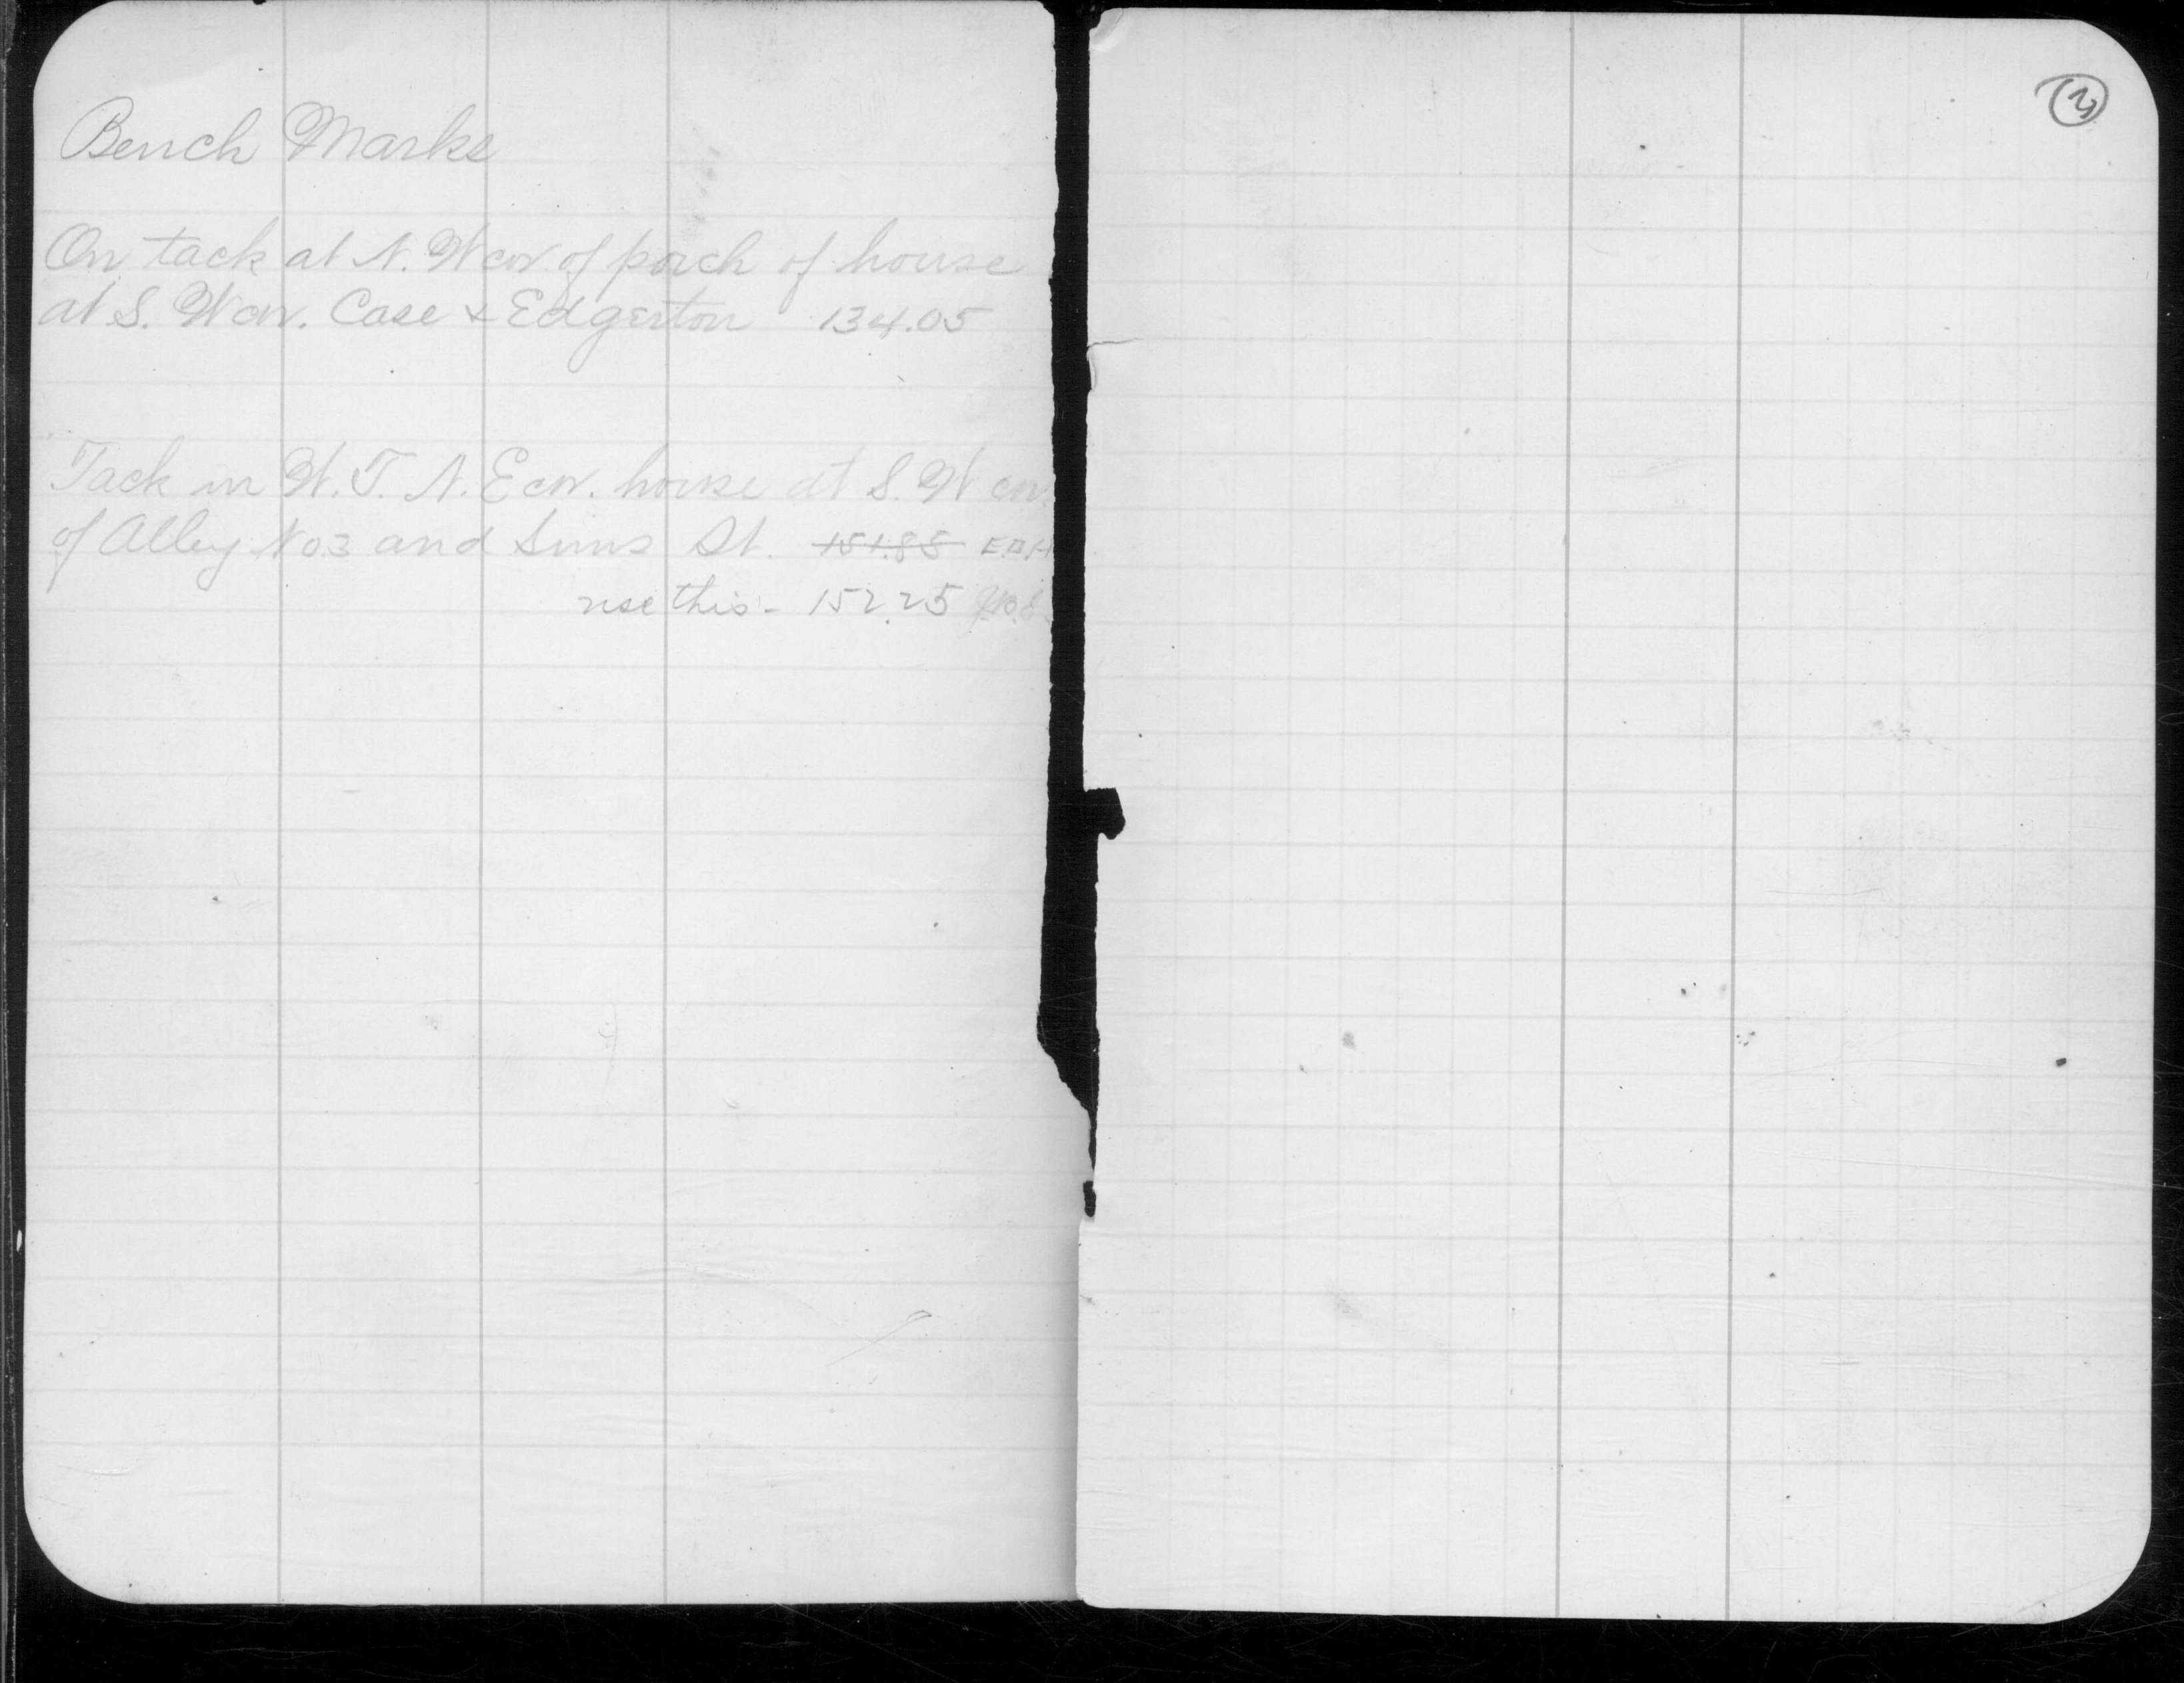 Bench Marks
On tack at N. W cor. of porch of house
at S. W cor. Case & Edgerton 134.05
Tack in W. T. N. E cor. house at S. W cor.
of Alley No 3 and Sims St. 151.85 E.P.H
use this - 152.25
2